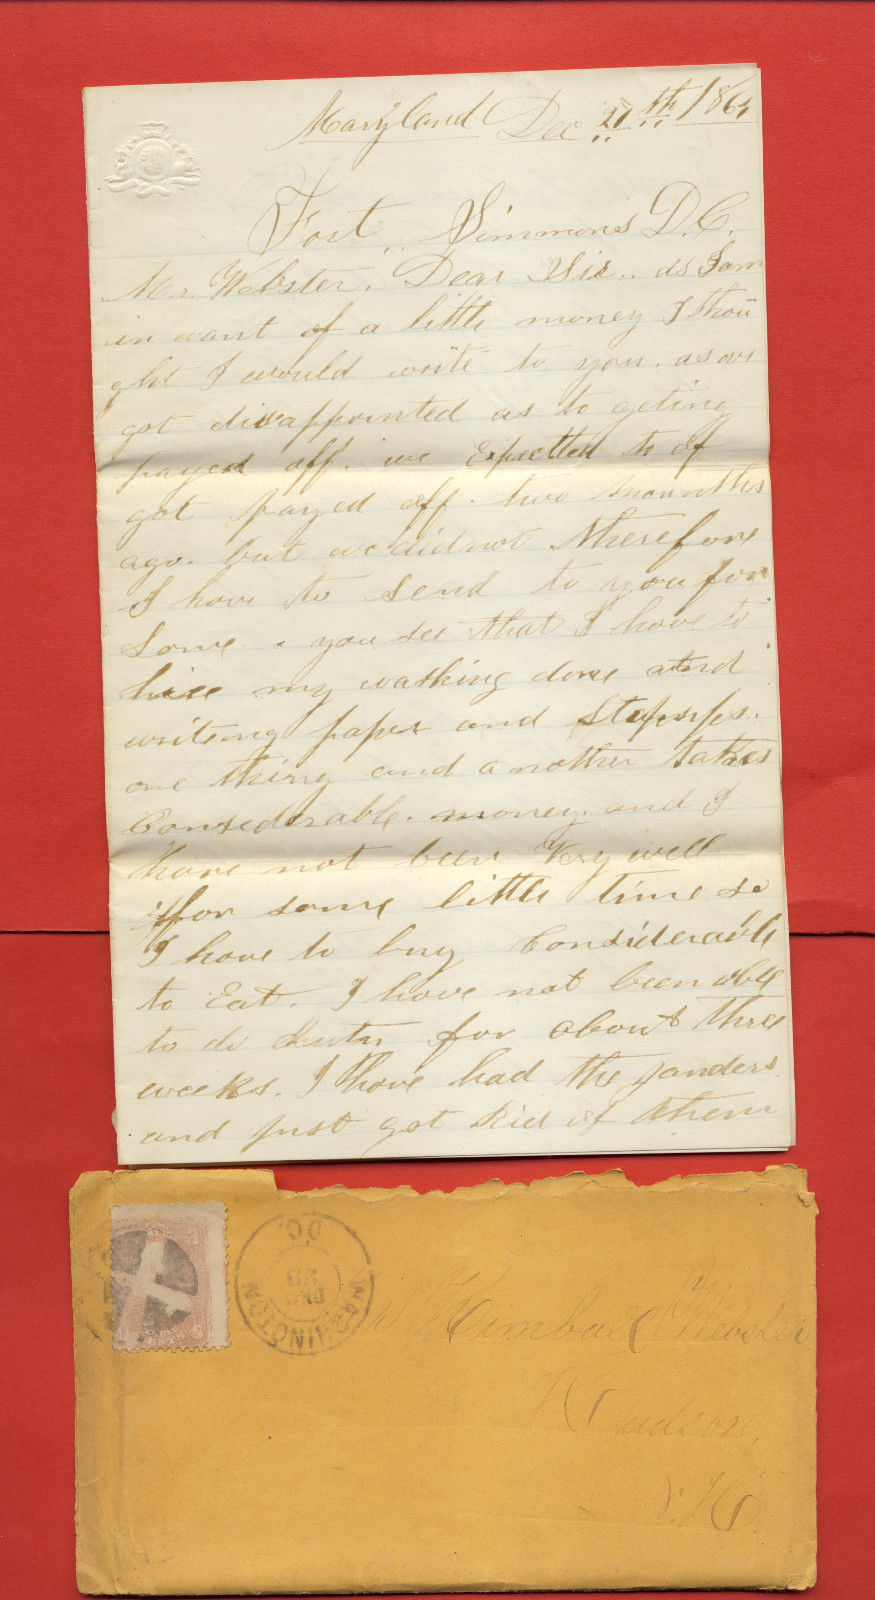 Maryland Dec 21th 1864
Fort Simmons D.C.
Mr. Webster. Dear Sir.. as I am
in want of a little money I thou
ght I would write to you. as we
got disappointed as to geting
payed off. we Expected to of
got payed off. two mounths
ago. but we did not therefore
I have to Send to you for
Some. you see that I have to
hire my washing done and
writeing paper and Stamps.
one thing and another takes
Considerable. money. and I
have not been Very well
for some little time so
I have to buy Considerable
to Eat. I have not been able
to do duty for about three
weeks. I have had the janders
and just got Rid of them
WASHINGTON
D.C.
Kimball Webster
Hudson,
N.H.